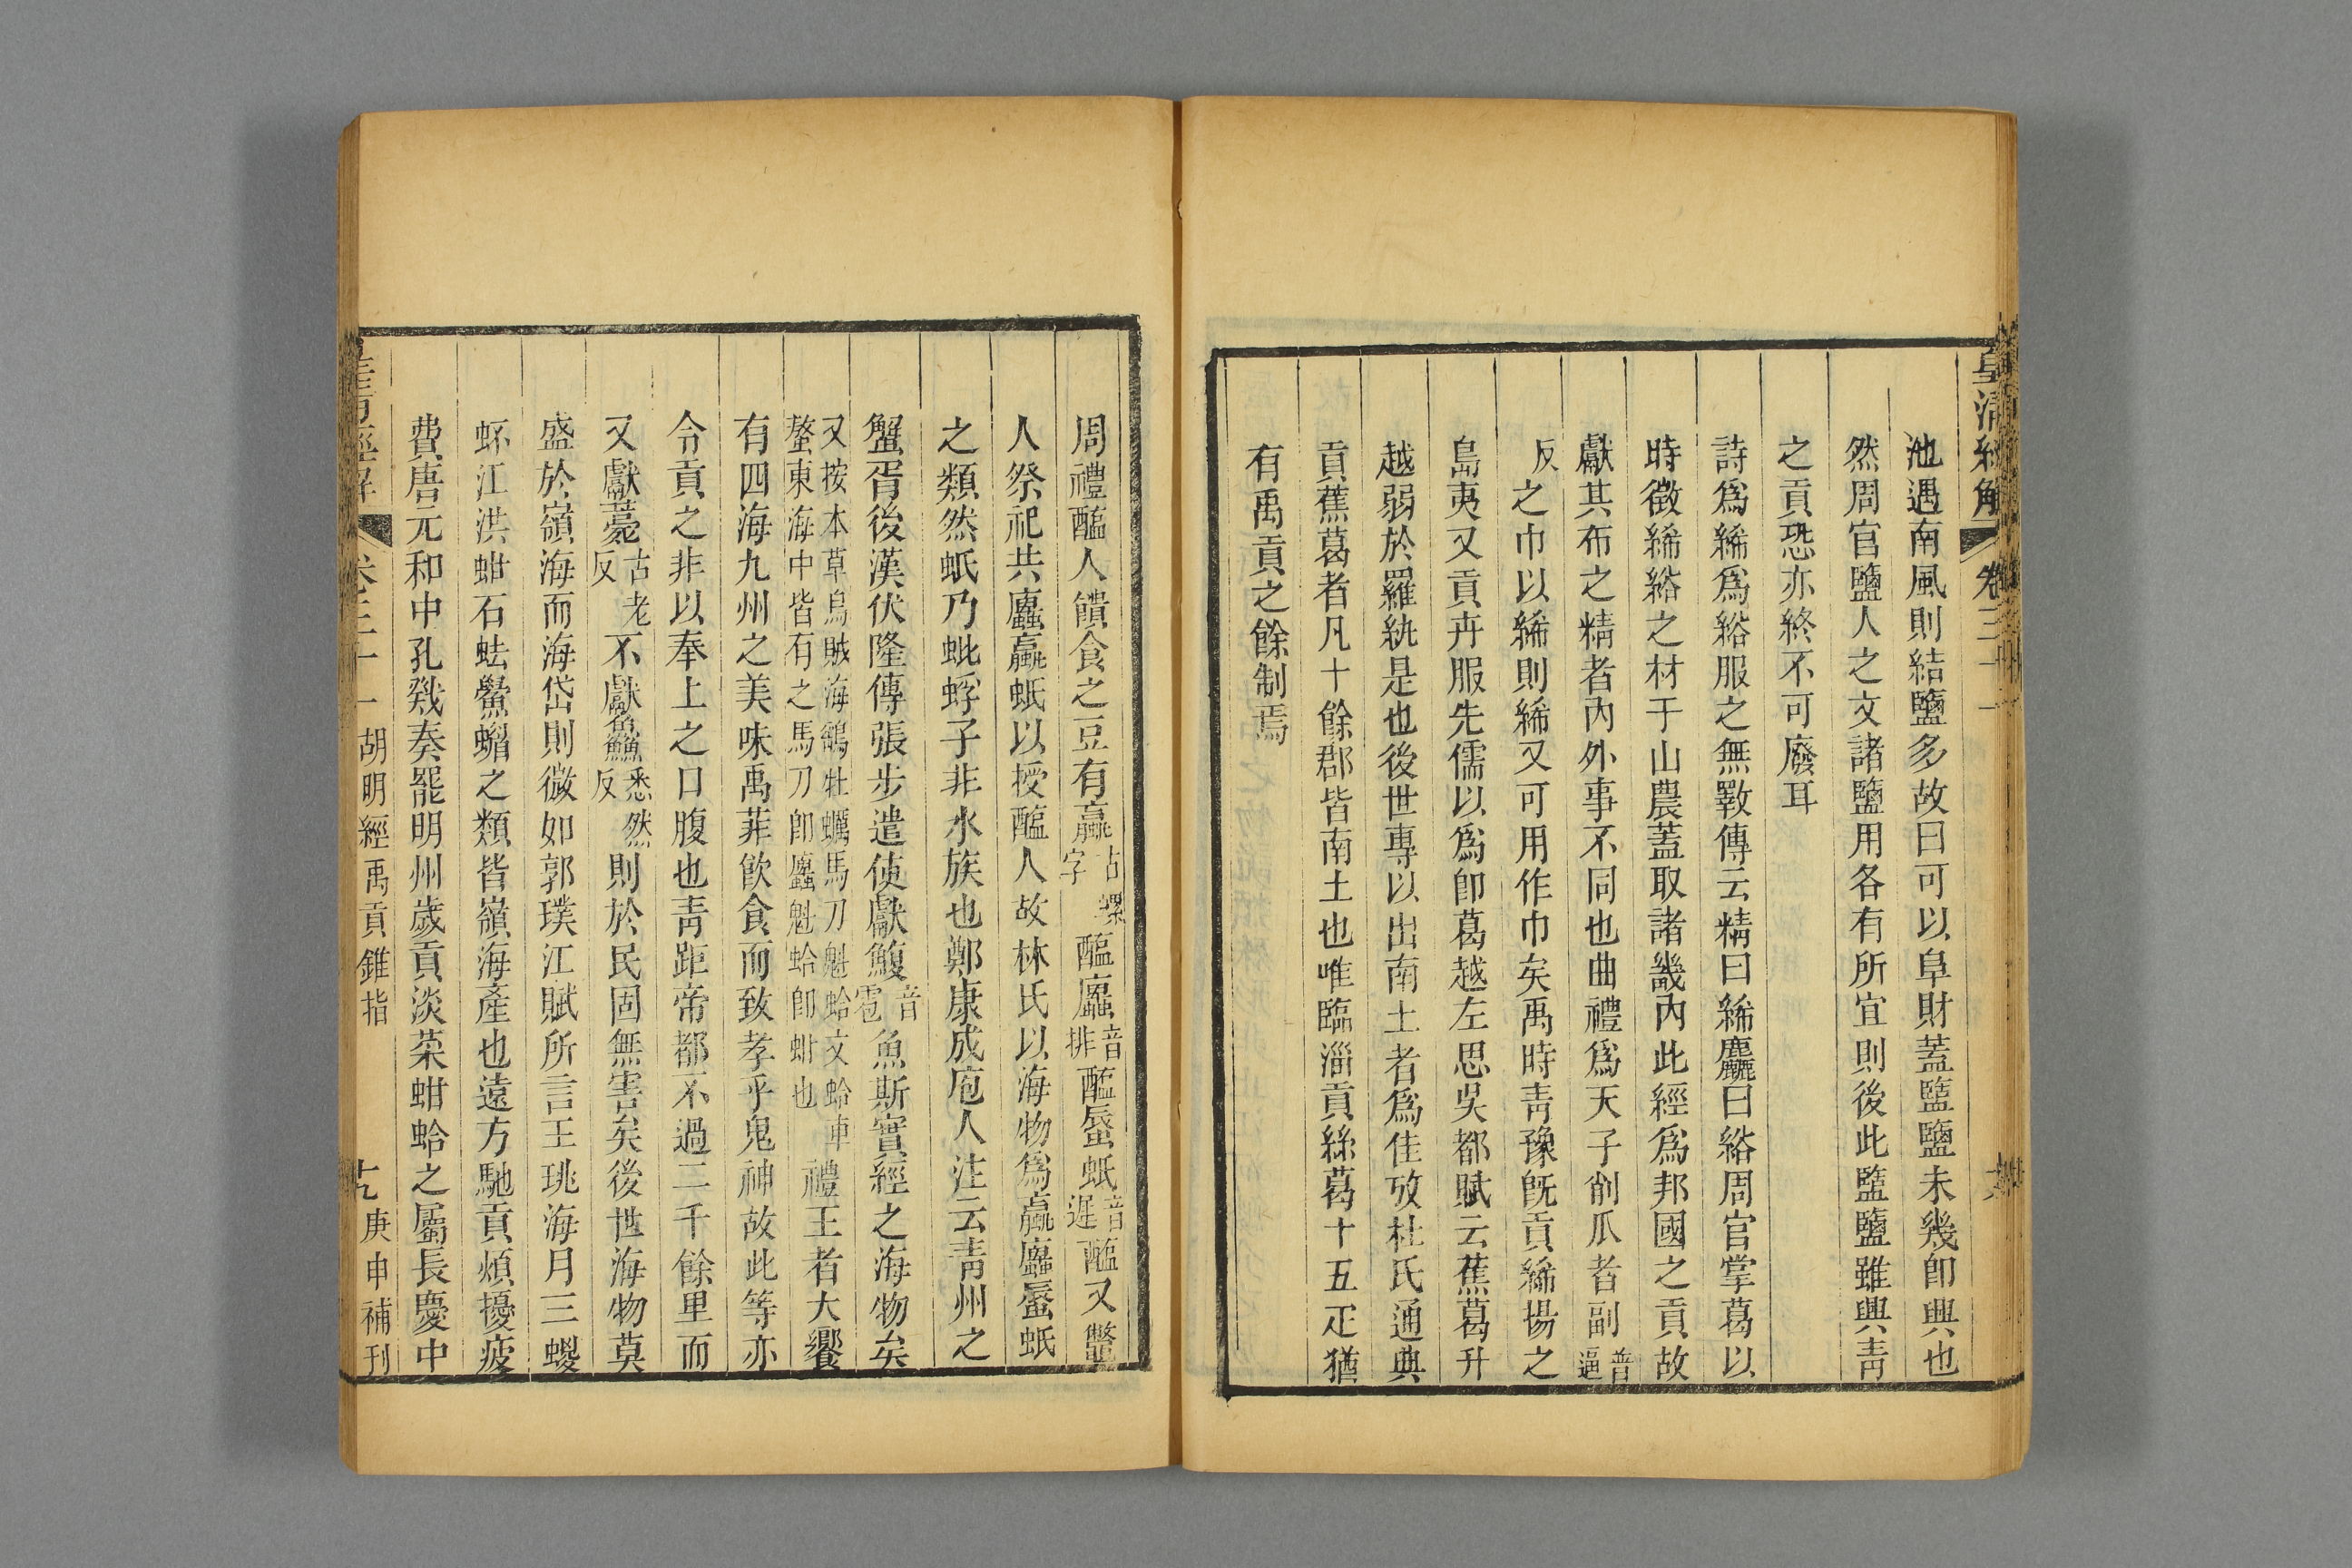 皇清經解 卷三十一
池遇南風則結鹽多故曰可以阜財蓋盬鹽未幾卽興也
然周官鹽人之文諸鹽用各有所宜則後此盬鹽雖興靑
之貢恐亦終不可廢耳
詩爲絺爲綌服之無斁傳云精曰絺麤曰綌周官掌葛以
時徵絺綌之材于山農蓋取諸畿內此經爲邦國之貢故
獻其布之精者內外事不同也曲禮爲天子削瓜者副音逼
反之巾以絺則絺又可用作巾矣禹時靑豫旣貢絺揚之
島夷又貢卉服先儒以爲卽葛越左思吳都賦云蕉葛升
越弱於羅紈是也後世專以出南土者爲佳攷杜氏通典
貢蕉葛者凡十餘郡皆南土也唯臨淄貢絲葛十五疋猶
有禹貢之餘制焉
周禮醢人饋食之豆有蠃古螺字醢蠯音排醢蜃蚳音遲醢又鼈
人祭祀共蠯蠃蚳以授醢人故林氏以海物爲蠃蠯蜃蚳
之類然蚳乃蚍蜉子非水族也鄭康成庖人注云靑州之
蟹胥後漢伏隆傳張步遣使獻鰒音雹魚斯實經之海物矣
又按本草烏賊海鷂牡蠣馬刀魁蛤文蛤車
螯東海中皆有之馬刀卽蠯魁蛤卽蚶也禮王者大饗
有四海九州之美味禹菲飮食而致孝乎鬼神故此等亦
令貢之非以奉上之口腹也靑距帝都不過二千餘里而
又獻薧古老反不獻鱻悉然反則於民固無害矣後世海物莫
盛於嶺海而海岱則微如郭璞江賦所言王珧海月三蝬
蚢江洪蚶石蜐鱟蝐之類皆嶺海產也遠方馳貢煩擾疲
費唐元和中孔戣奏罷明州歲貢淡菜蚶蛤之屬長慶中
皇淸經解 卷三十一 胡明經禹貢錐指 九 庚申補刊